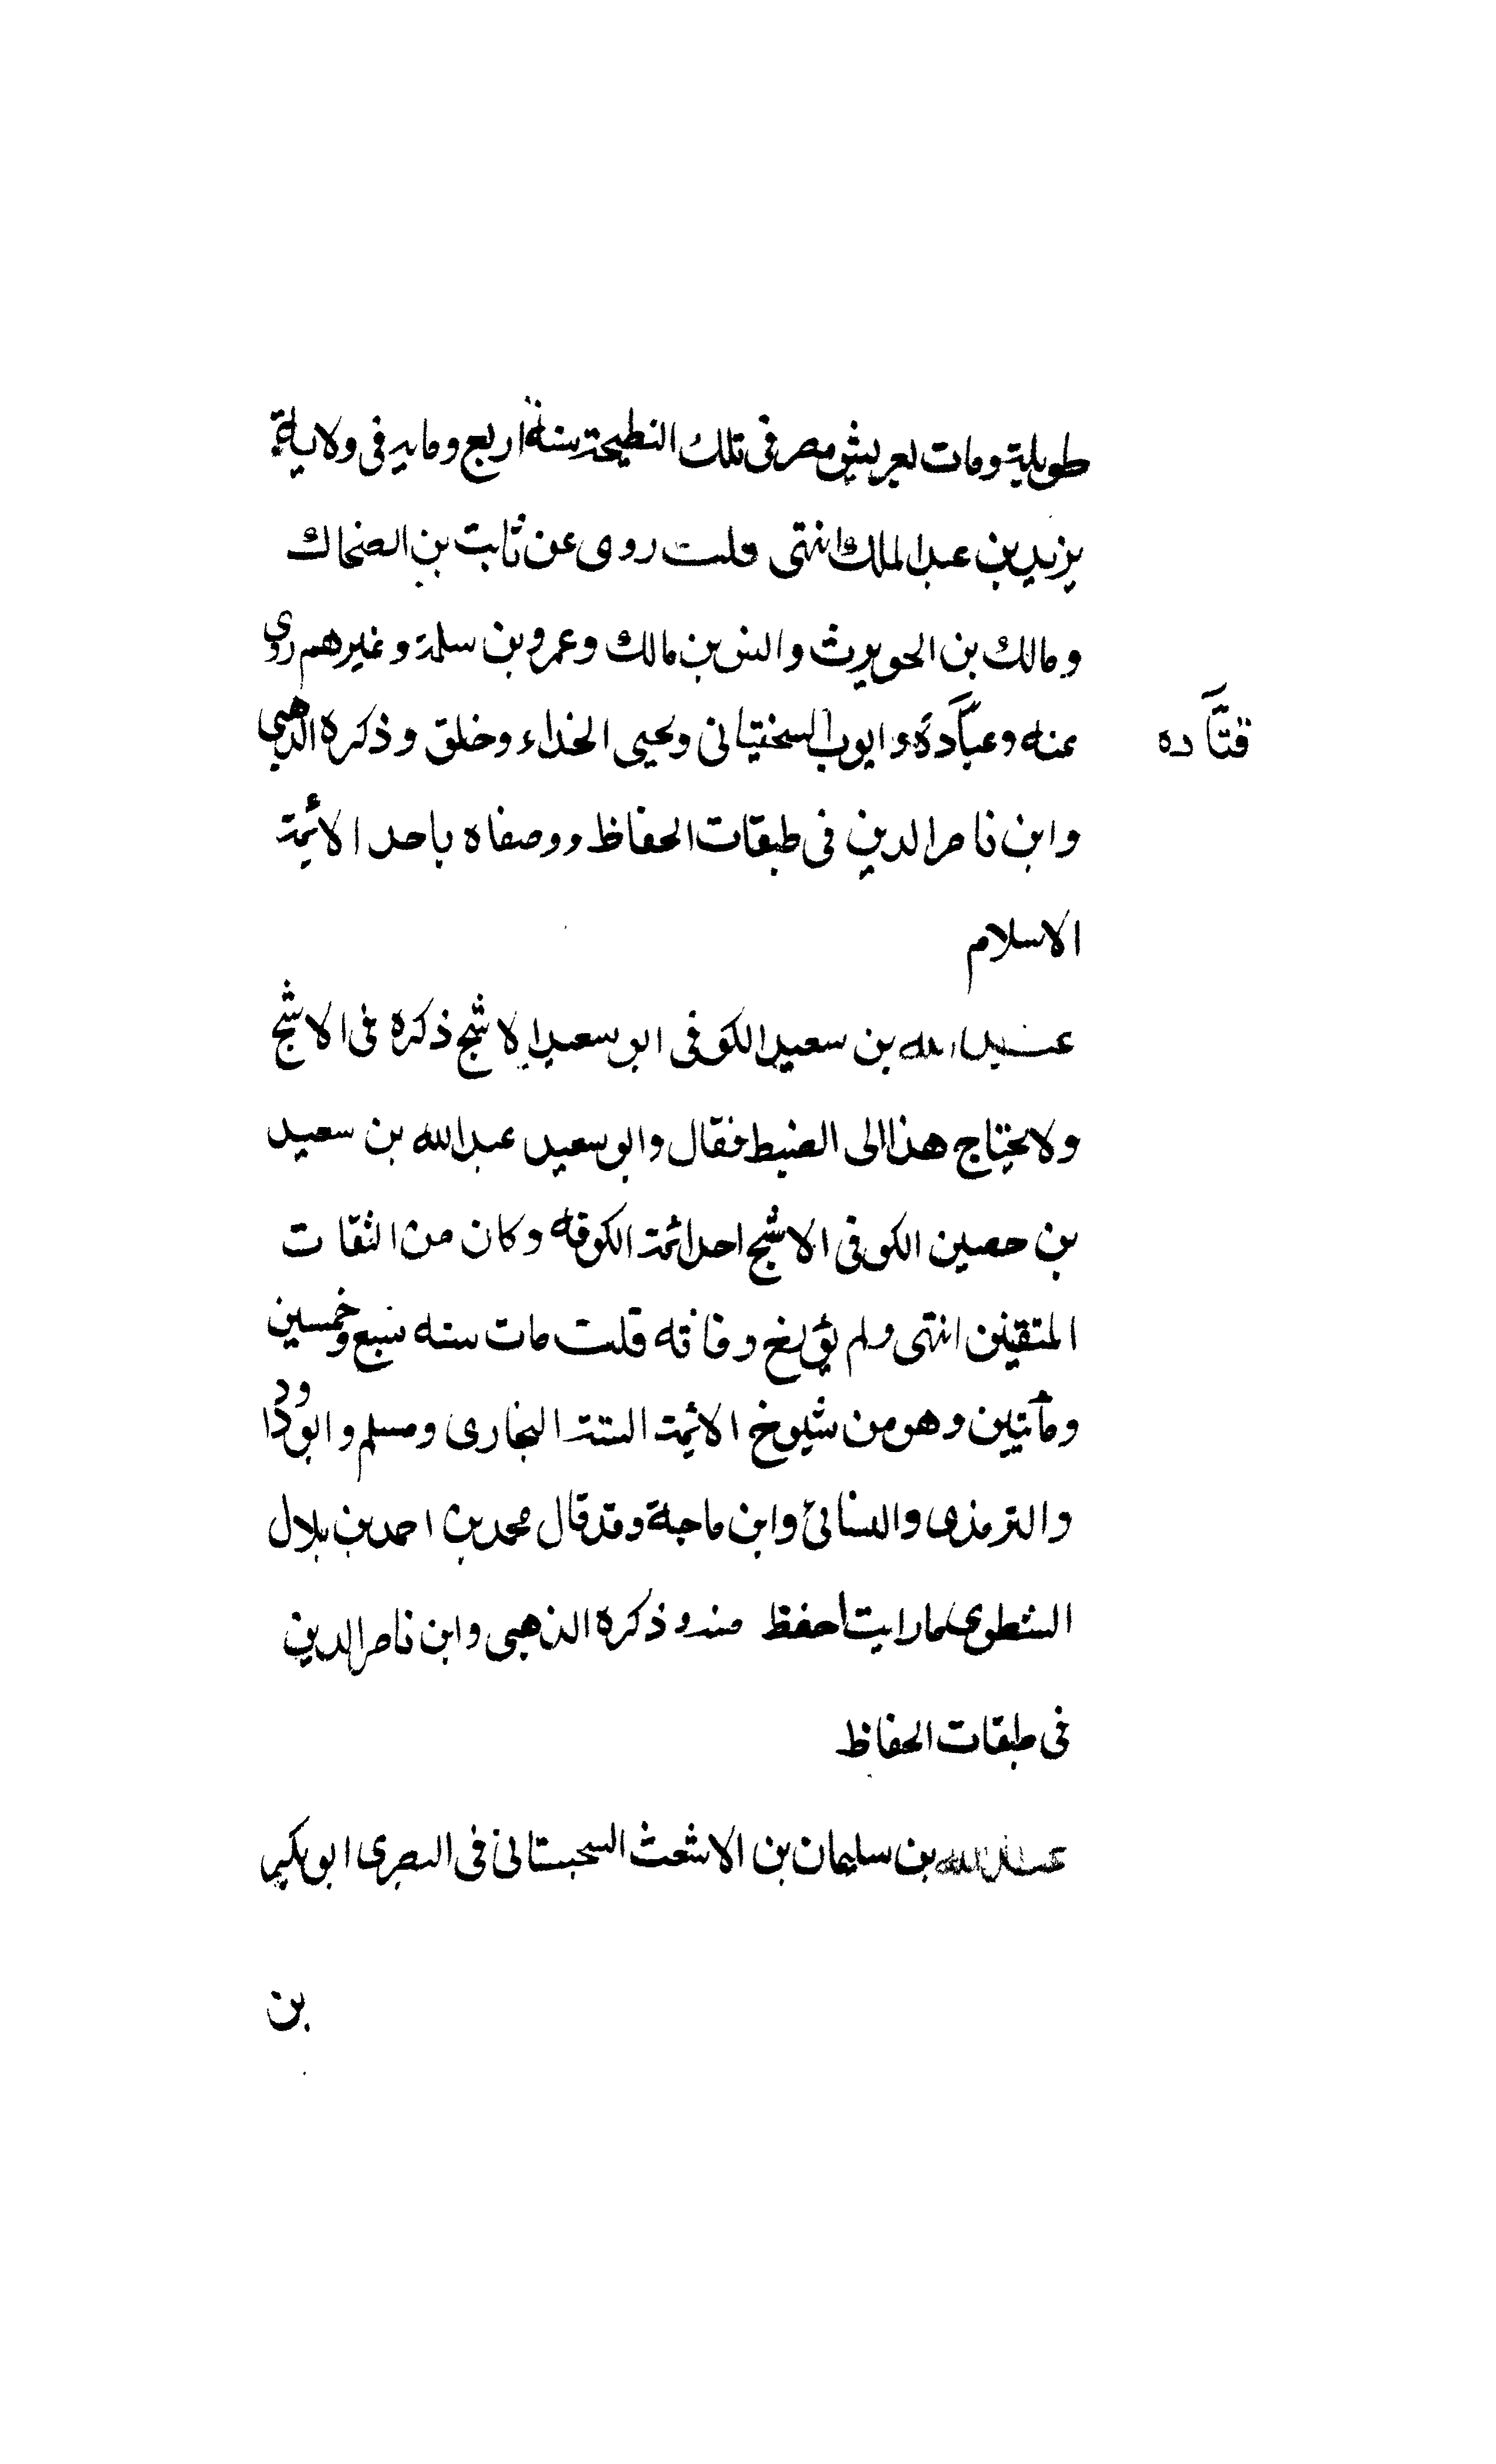 طويلة ومات بعريش مصر في تلك النطيحة سنة اربع ومايه في ولاية
يزيد بن عبد الملك انتهى قلت روى عن ثابت بن الضحاك
ومالك بن الحويرث وانس بن مالك وعمرو بن سلمة وغيرهم روى
عنه وعبادة وايوب السختياني ويحيى الحذاء وخلق وذكره الذهبي
قتاده
وابن ناصر الدين في طبقات الحفاظ ووصفاه باحد الائمة
الاسلام
عبد الله بن سعيد الكوفي ابو سعيد الاشج ذكره في الاشج
ولا يحتاج هذا الى الضبط فقال وابو سعيد عبد الله بن سعيد
بن حصين الكوفي الاشج احد ائمة الكوفه وكان من الثقات
المتقنين انتهى ولم يؤرخ وفاته قلت مات سنه سبع وخمسين
ومأتين وهو من شيوخ الائمة الستة البخارى ومسلم وابو داود
والترمذى والنسائي وابن ماجة وقد قال محمد بن احمد بن بلال
الشطوى ما رايت احفظ منه وذكره الذهبى وابن ناصر الدين
في طبقات الحفاظ
عبد الله بن سليمان بن الاشعث السجستاني في البصرى ابو بكير
بن